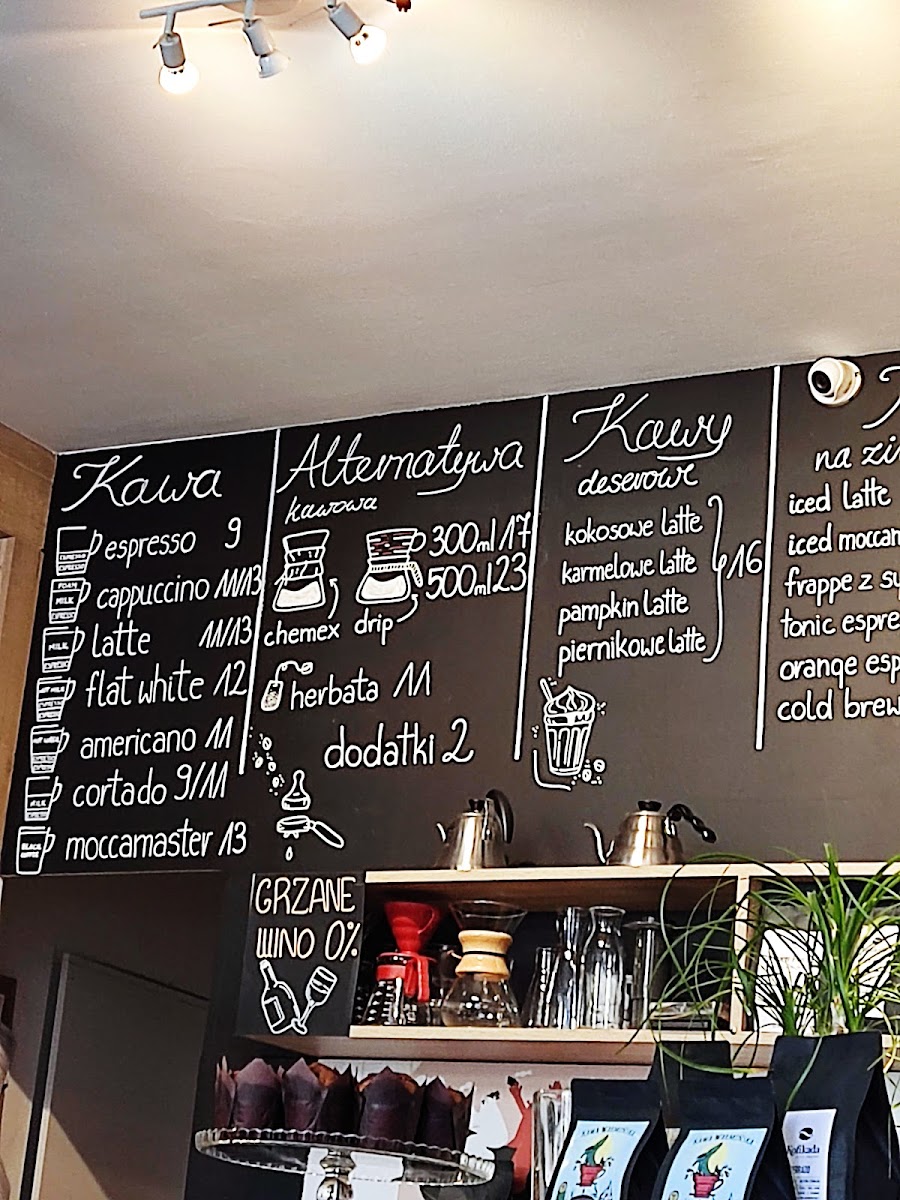 Kawa
espresso 9
cappuccino 11/13
latte 11/13
flat white 12
americano 11
cortado 9/11
moccamaster 13
Alternatywa
kawowa
300ml 17
500ml 23
chemex drip
herbata 11
dodatki 2
Kawy
deserowe
kokosowe latte
karmelowe latte
pampkin latte
piernikowe latte
16
na zi
iced latte
iced moccam
frappe z sy
tonic espre
orange esp
cold brew
GRZANE
WINO 0%